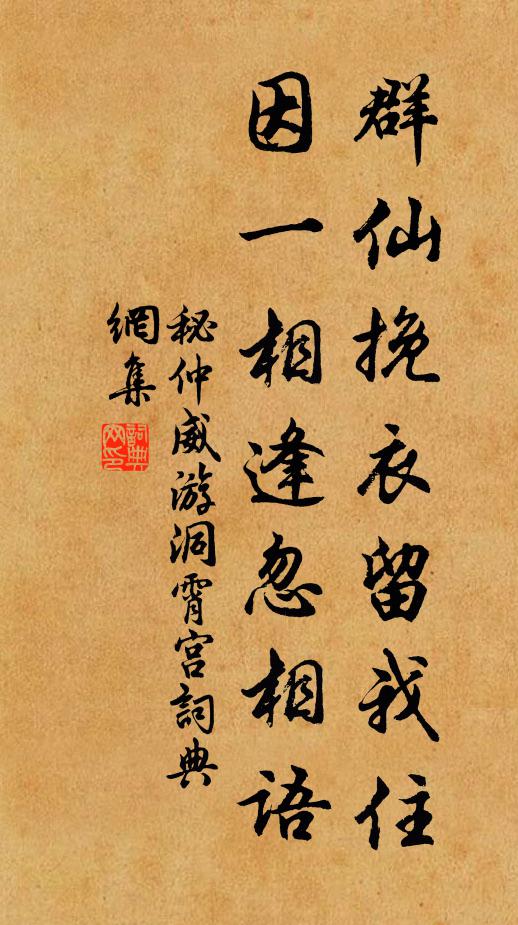 群仙挽衣留我住
因一相逢忽相語
秘仲威游洞霄宫詞典
網集
詞典網印